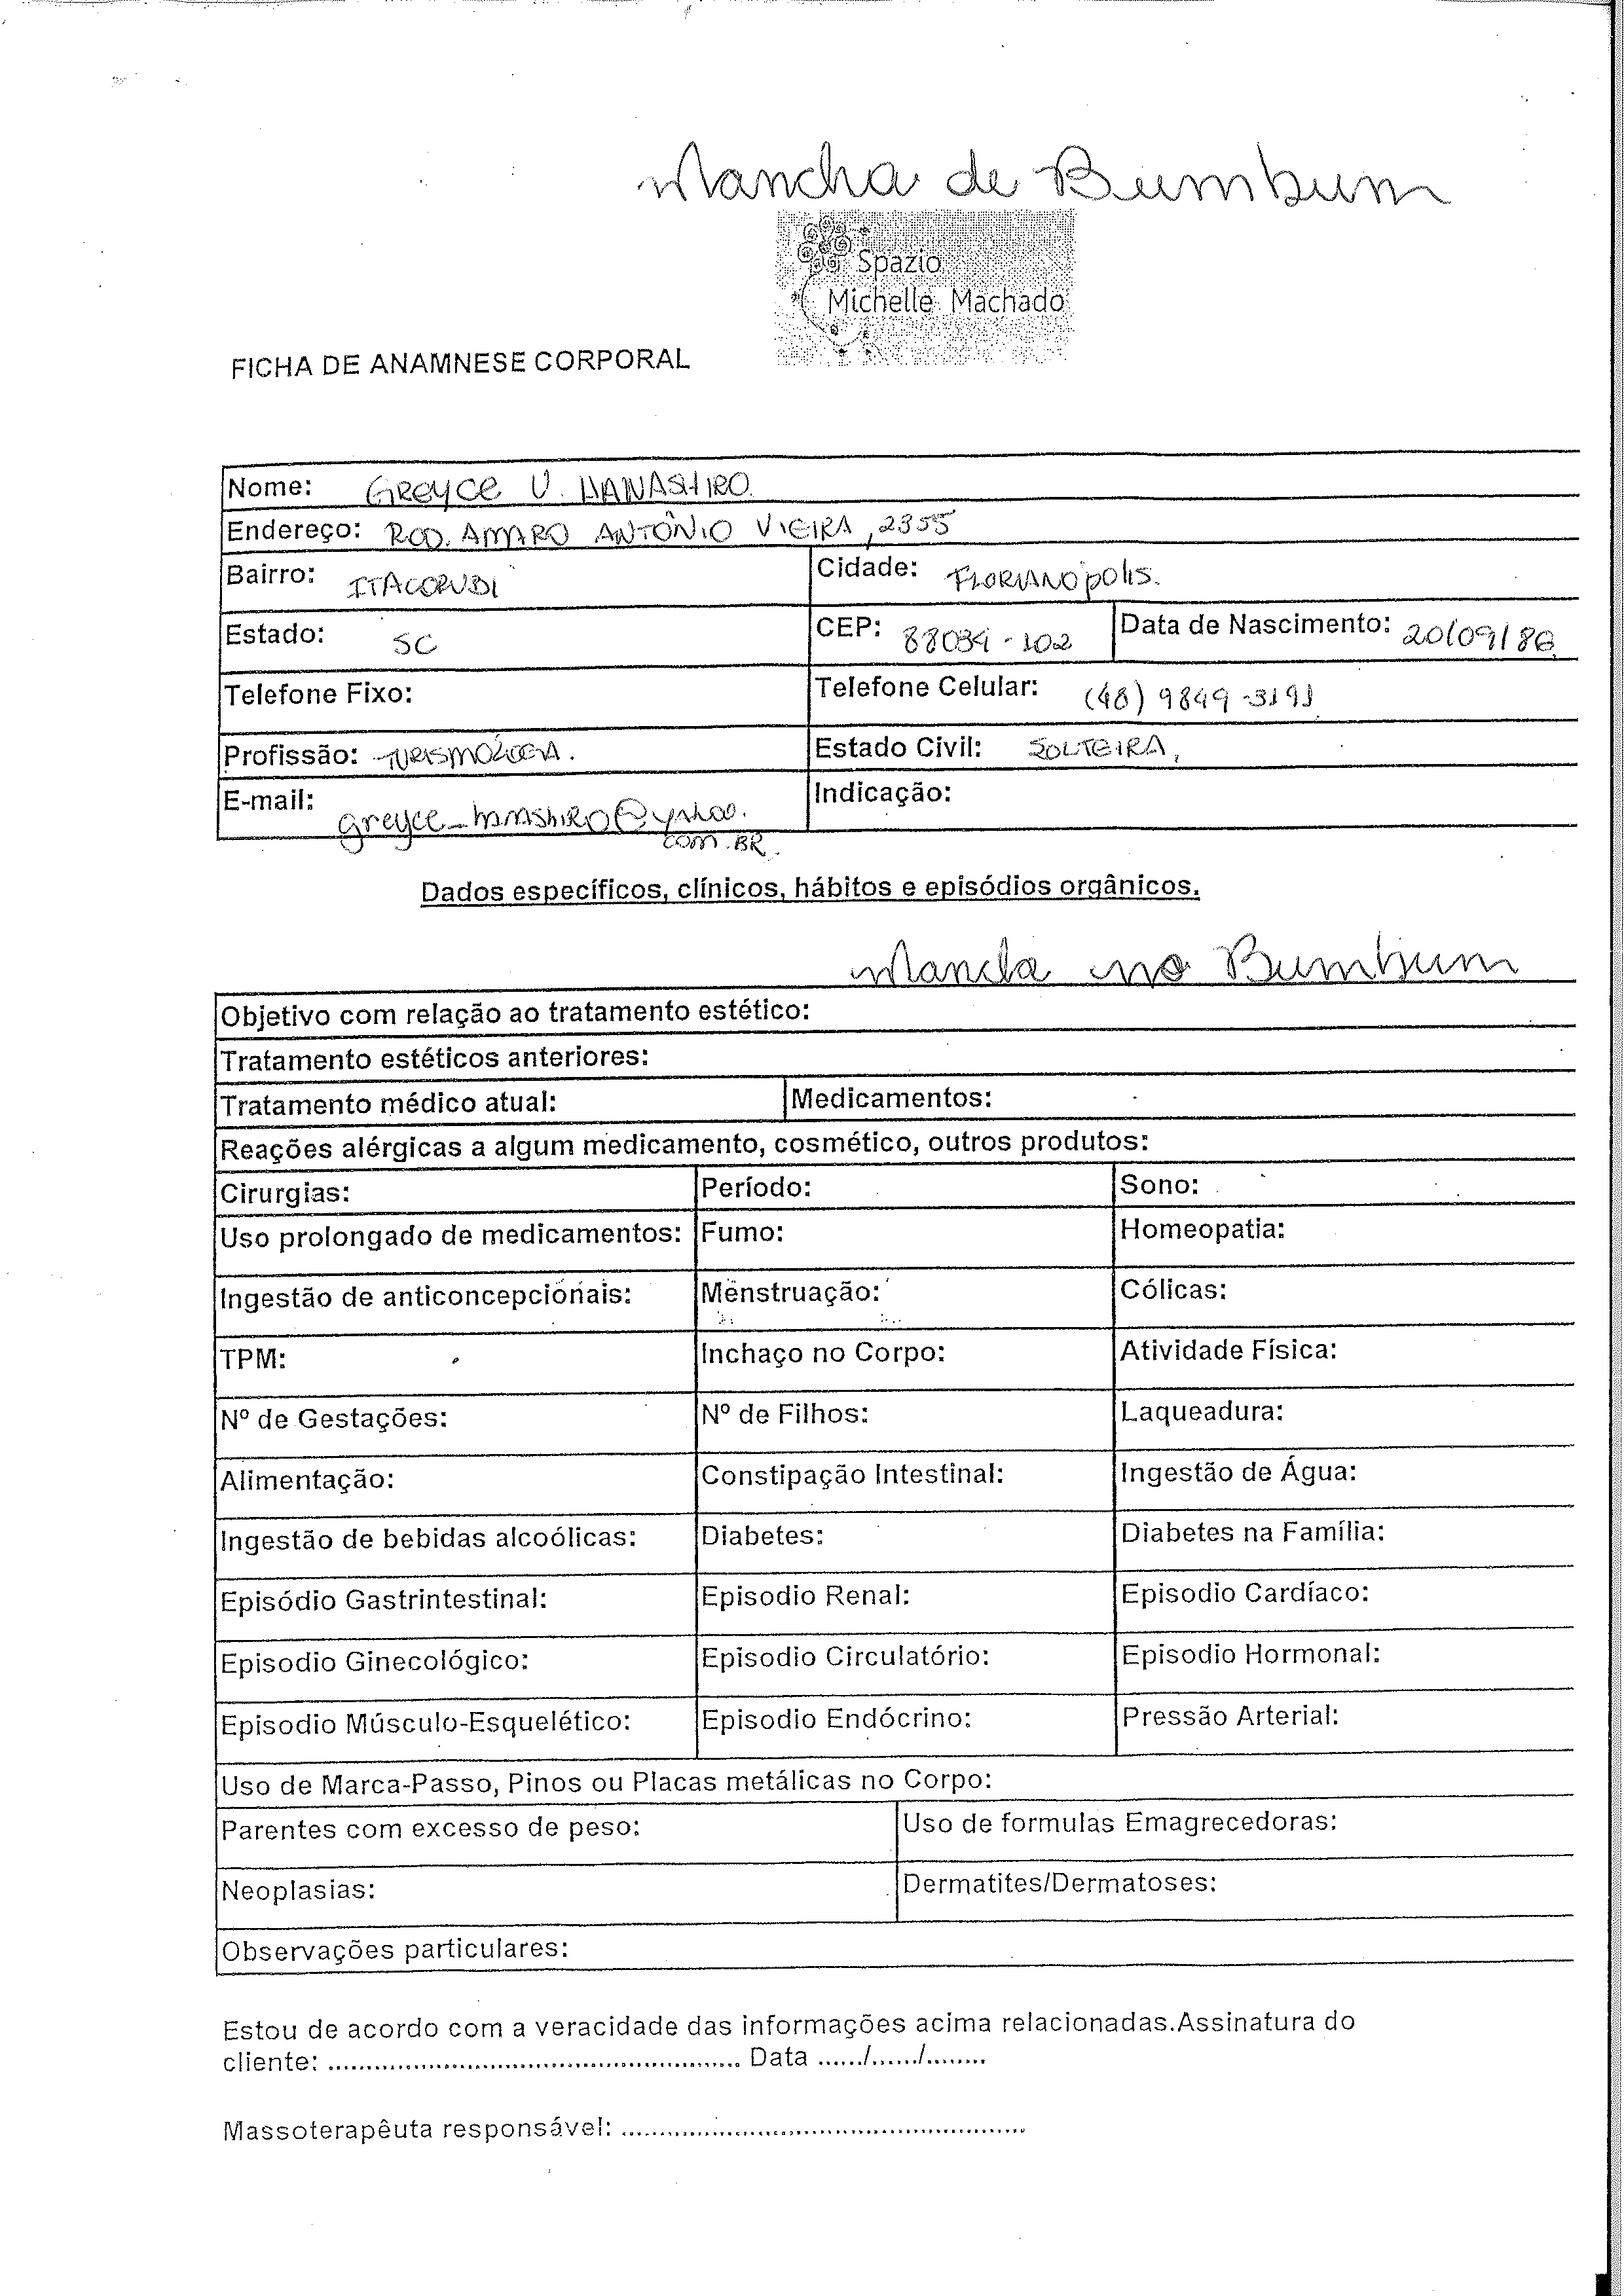 Mancha de Bumbum
Spazio
Michelle Machado
FICHA DE ANAMNESE CORPORAL
Nome: GREYCE U. HANASHIRO
Endereço: ROD. AMARO ANTÔNIO VIEIRA, 2355
Bairro: ITACORUBI Cidade: FLORIANÓPOLIS.
Estado: SC CEP: 88034-102 Data de Nascimento: 20/09/86
Telefone Fixo: Telefone Celular: (48) 9849-3191
Profissão: TURISMÓLOGA. Estado Civil: SOLTEIRA,
E-mail: greyce_hanashiro@yahoo. Indicação:
com.BR.
Dados específicos, clínicos, hábitos e episódios orgânicos.
Mancha no Bumbum
Objetivo com relação ao tratamento estético:
Tratamento estéticos anteriores:
Tratamento médico atual: Medicamentos:
Reações alérgicas a algum medicamento, cosmético, outros produtos:
Cirurgias: Período: Sono:
Uso prolongado de medicamentos: Fumo: Homeopatia:
Ingestão de anticoncepcionais: Menstruação: Cólicas:
TPM: Inchaço no Corpo: Atividade Física:
Nº de Gestações: Nº de Filhos: Laqueadura:
Alimentação: Constipação Intestinal: Ingestão de Água:
Ingestão de bebidas alcoólicas: Diabetes: Diabetes na Família:
Episódio Gastrintestinal: Episodio Renal: Episodio Cardíaco:
Episodio Ginecológico: Episodio Circulatório: Episodio Hormonal:
Episodio Músculo-Esquelético: Episodio Endócrino: Pressão Arterial:
Uso de Marca-Passo, Pinos ou Placas metálicas no Corpo:
Parentes com excesso de peso: Uso de formulas Emagrecedoras:
Neoplasias: Dermatites/Dermatoses:
Observações particulares:
Estou de acordo com a veracidade das informações acima relacionadas.Assinatura do
cliente: ...................................................... Data ....../....../........
Massoterapêuta responsável: .....................................................